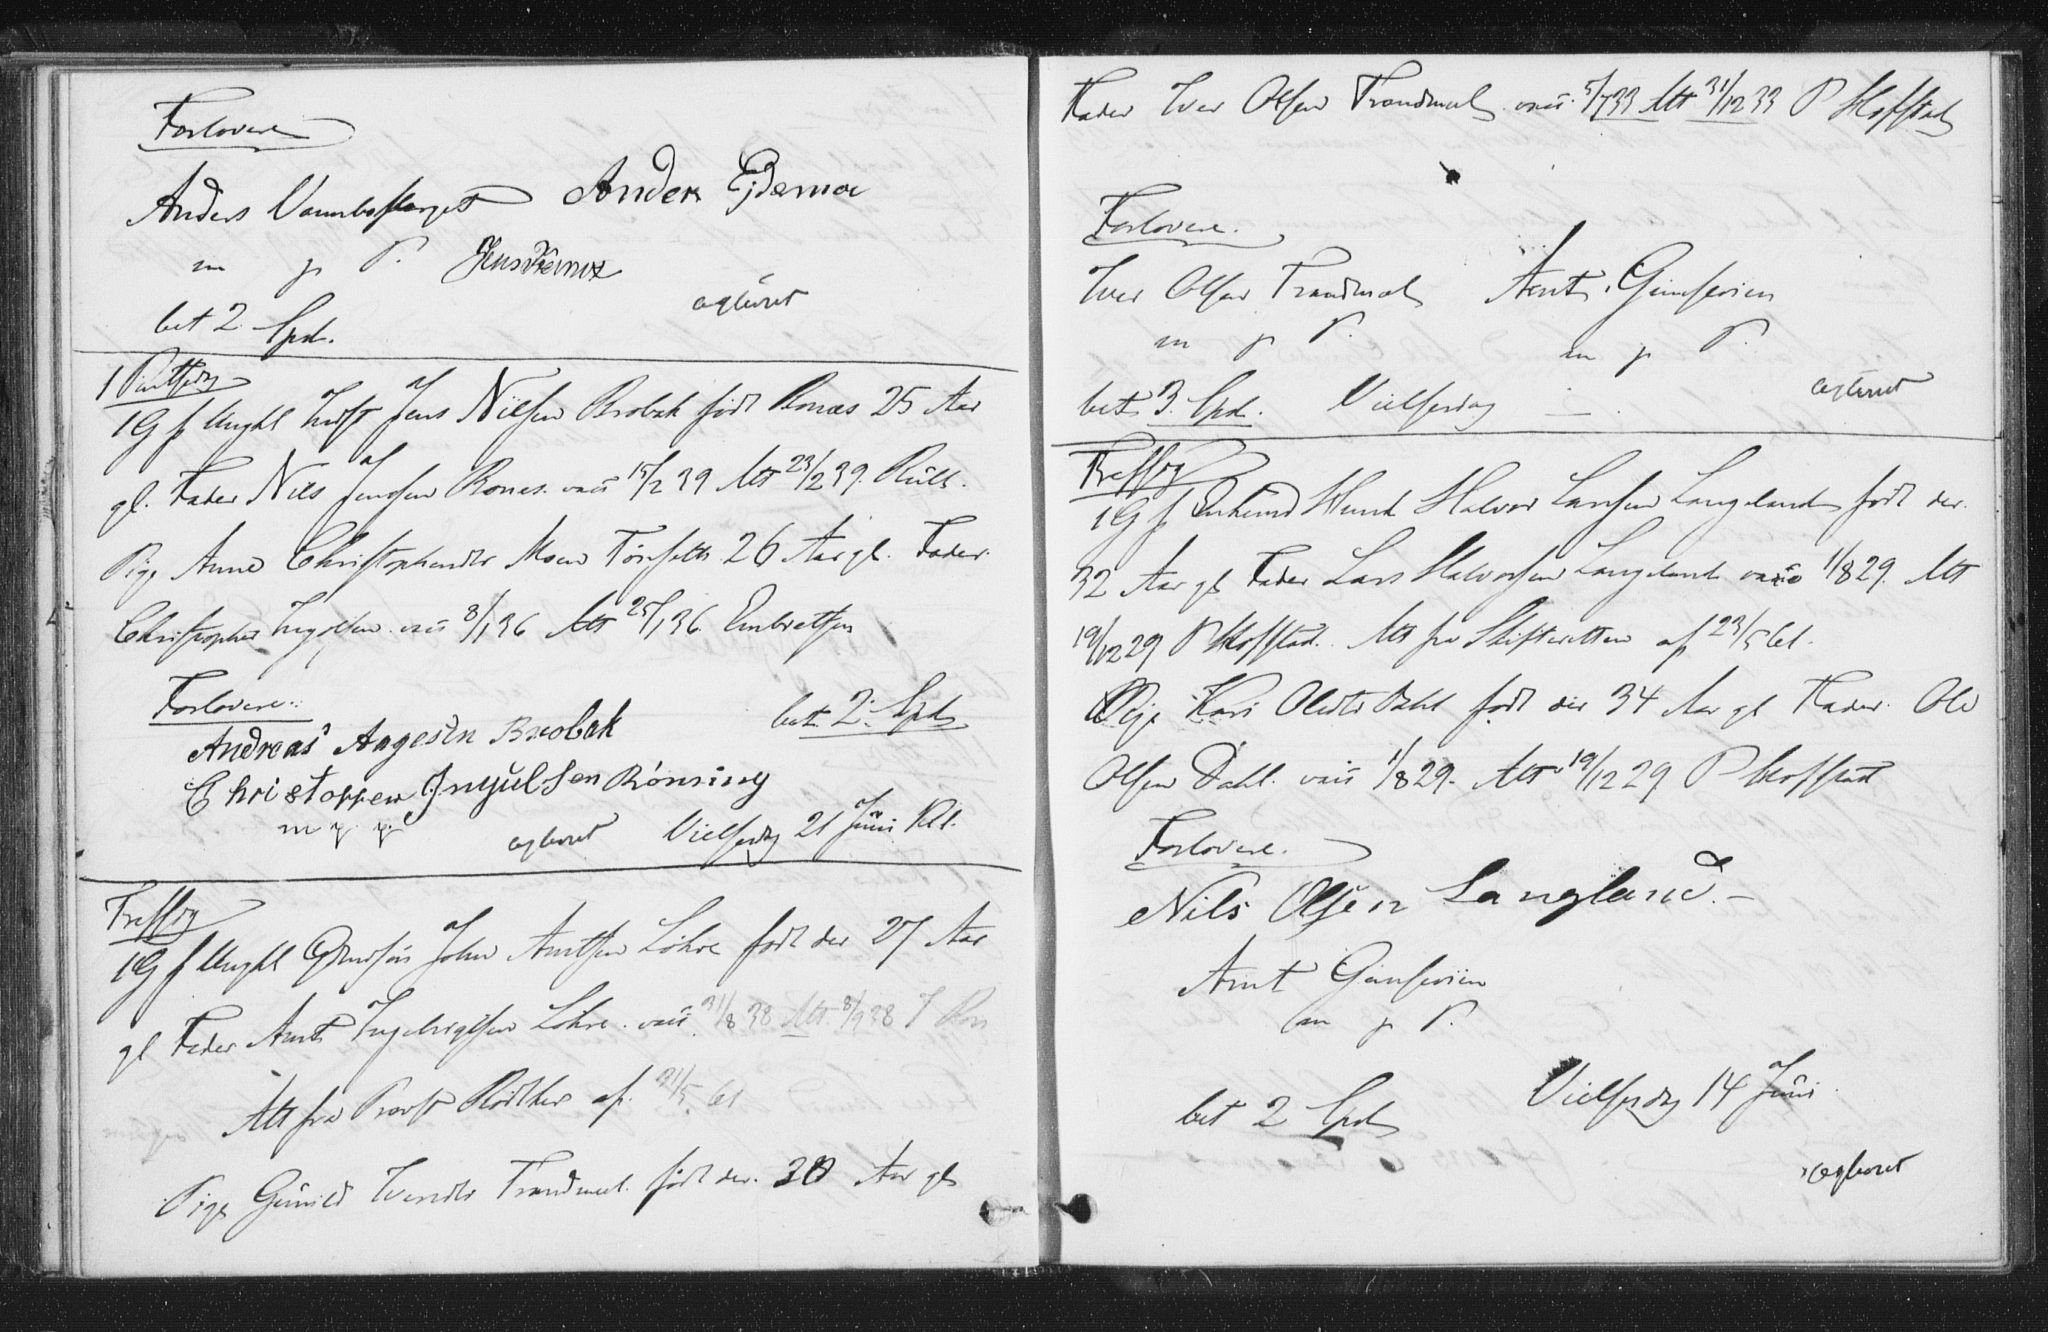 Forlovere
Anders Vammboskorget Anders Gjdemoe
m p P. Jens
bet 2 Spd. egteviet
1 Pintsedag
1 G f Ungkl Indst Jens Nielsen Brobak født Ronæs 25 Aar
gl. Fader Niels Jensen Ronæs. vacc 15/2 39 Att 23/12 39. Küll.
Pige Anne Christophersdtr Moen Törseth 26 Aar gl. Fader
Christopher Ingolfsen vacc 8/1 36 Att 25/1 36 Embretsen
Forlovere. bet 2 Spd
Andreas Aagesen Brobak
Christoffer Ingulsen Rönsing
m p p. egteviet Vielsesdag 21 Juni 61.
Trefsdg
1 G f Ungkl Gmdsøn John Arntsen Löhre født der 27 Aar
gl Fader Arnt Ingebrigtsen Löhre. vacc. 31/8 38 Att. 8/9 38
Att fra Provst af 21/5 61
Pige Gunild Iversdtr Trandmæl. født der. 28 Aar gl
Fader Iver Olsen Trandmæl vacc. 5/7 33 Att 31/12 33 P Hoffstad
Forlovere.
Iver Olsen Trandmæl Arnt Gimsevien
m p P. m p P.
bet 3. Spd. Vielsesdag — egteviet
Trefsdg
1 G f Enkemd Husmd Halvor Larsen Langeland født der.
32 Aar gl Fader Lars Halvorsen Langeland vacc 1/8 29. Att
19/12 29 P Hoffstad. Att fra Skifteretten af 23/5 61.
Pige Kari Olsdtr Dahl født der 34 Aar gl Fader. Ole
Olsen Dahl. vacc 1/8 29. Att 19/12 29 P Hoffstad
Forlovere.
Nils Olsen Langland. —
Arnt Gimsevien
m p P.
bet 2 Spd Vielsesdag 14 Juni
egteviet